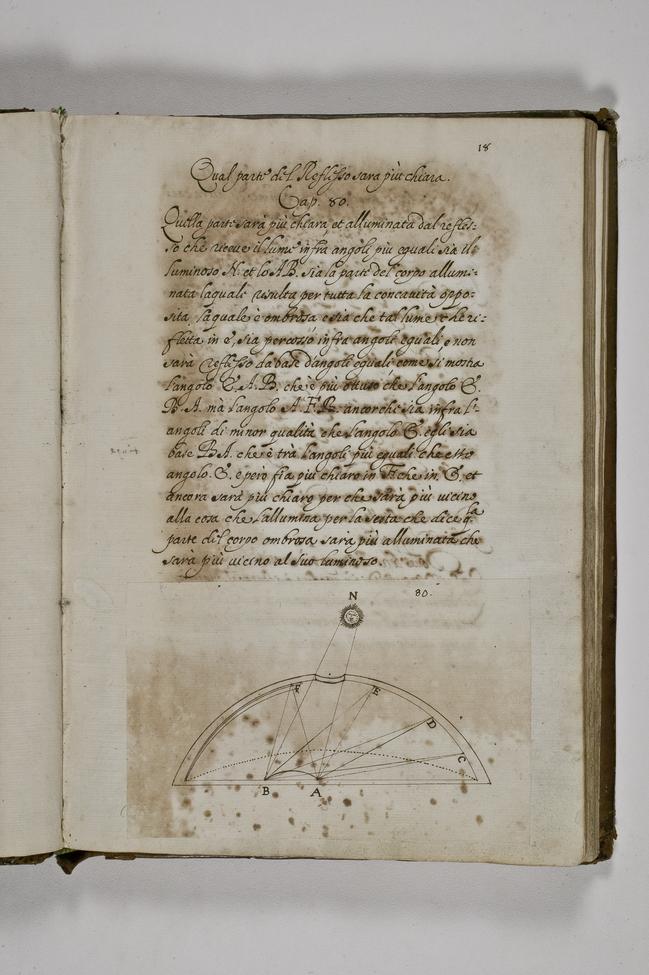 18
Qual parte del Reflesso sara più chiara.
Cap. 80.
Quella parte sarà più chiara, et alluminata dal refles-
so che riceue il lume infrà angoli più eguali sia il
luminoso N. et lo AB. sia la parte del corpo allumi-
nata laquali risulta per tutta la concauità oppo-
sita, laquale è ombrosa e sia che tal lume che ri-
fletta in è, sia percosso infra angoli eguali e non
sarà reflesso da base d'angoli eguali come si mostra
l'angolo E. A. B. che è più ottuso che l'angolo E.
B. A. mà l'angolo A. F. B. ancorche sia infra l'
angoli di minor qualità che l'angolo E. egli sia
base BA. che è trà l'angoli più eguali che esso
angolo. E. e però fia più chiaro in F. che in. E. et
ancora sarà più chiaro per che sarà più uicino
alla cosa che l'allumina per la sesta che dice q.la
parte del corpo ombrosa sarà più alluminata che
sarà più uicino al suo luminoso.
80.
N
F E
D
C
B A